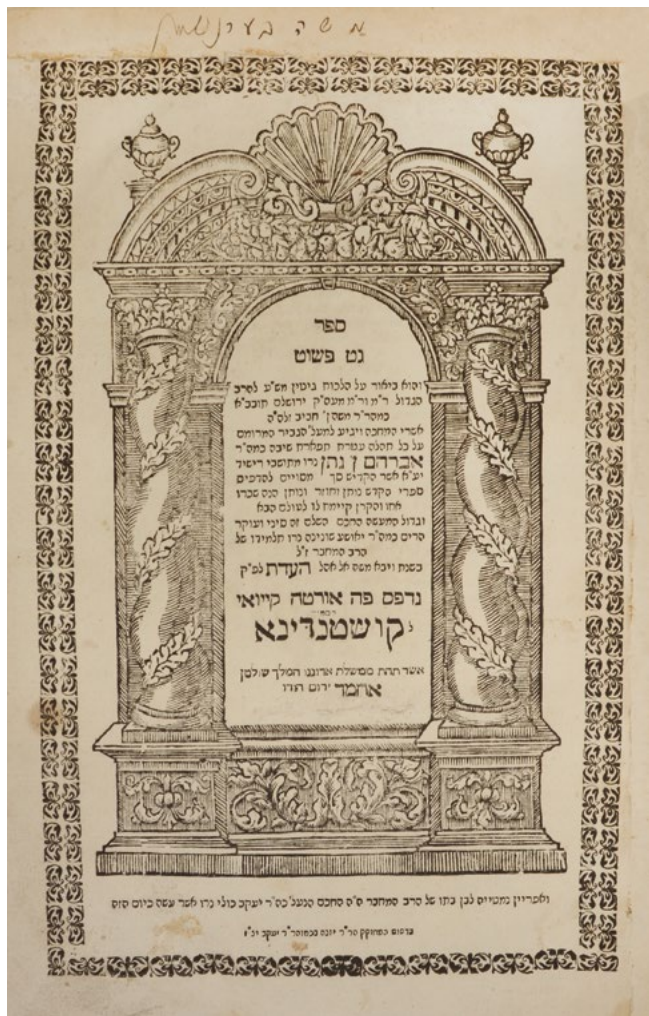 משה בערנשטיין
ספר
גט פשוט
והוא ביאור על הלכות גיטין מש״ע להרב
הגדול ר״מ ור״מ מעה״ק ירושלם תובב״א
כמהר״ר משה ן׳ חביב זלה״ה
אשרי המחכה ויגיע למעל הגביר המרומם
על כל תהלה עטרת תפארת שיבה כמה״ר
אברהם ן׳ נתן נרו מתושבי רישיד
יע״א אשר הקדיש סך מסויים להדפיס
ספרי הקדש נותן וחוזר ונותן הנה שכרו
אתו והקרן קיימת לו לעולם הבא
וגדול המעשה החכם השלם זה סיני ועוקר
הרים כמה״ר יאושע שונינה נרו תלמידו של
הרב המחבר ז״ל
בשנת ויבא משה אל אהל העדת לפ״ק
נדפס פה אורטה קייואי
ל קושטנדינא
אשר תחת ממשלת אדוננו המלך שולטן
אחמד ירום הודו
ואפריין נמטייה לבן בתו של הרב המחבר ה״ה החכם הנעל׳ כה״ר יעקב כולי נרו אשר עשה כיום הזה
בדפוס המחוקק הר״ר יונה בכמוהר״ר יעקב יל״ץ